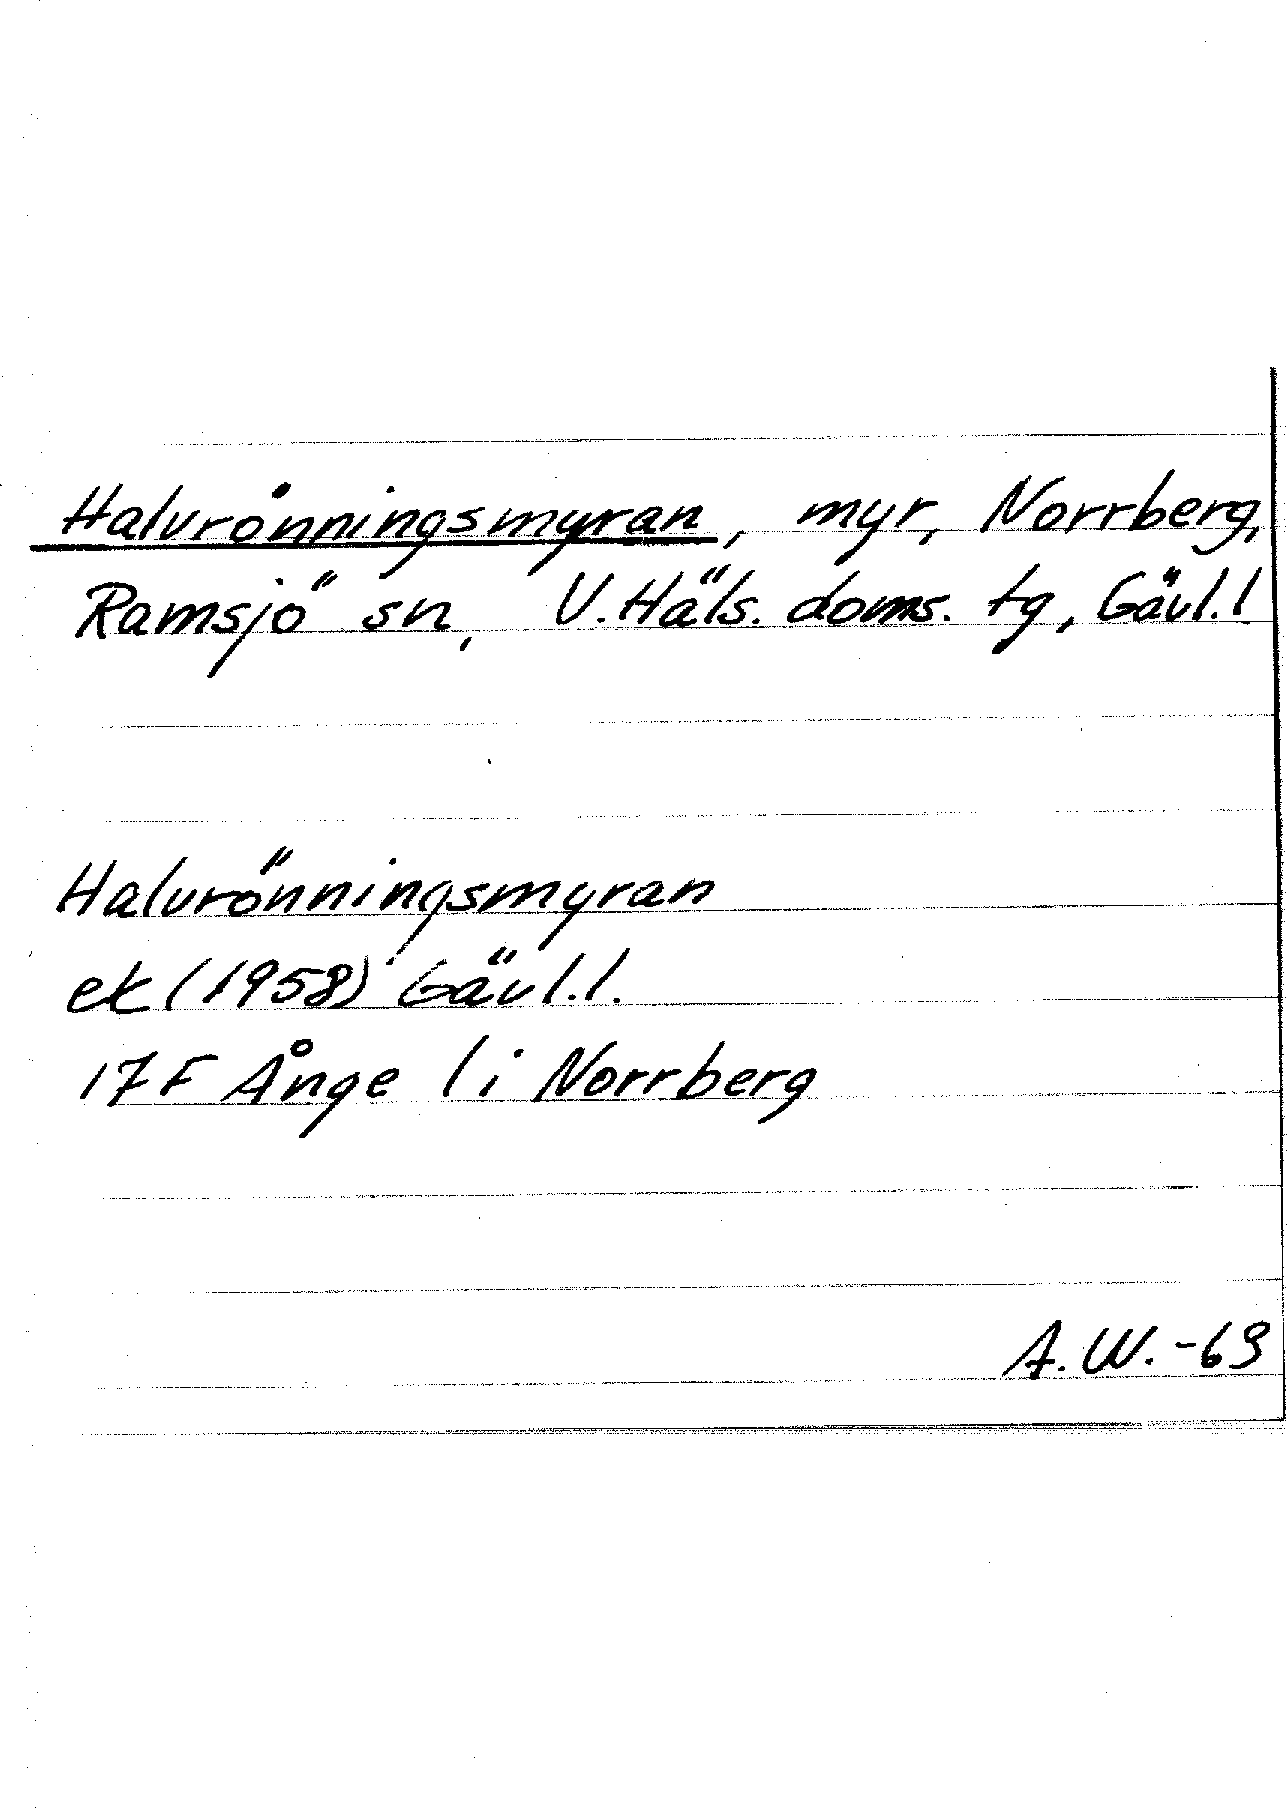 Halvrönningsmyran, myr, Norrberg,
Ramsjö sn, V. Häls. doms. tg, Gävl. l
Halvrönningsmyran
ek (1958) Gävl. l.
17F Ånge 1 i Norrberg
A. W. -69